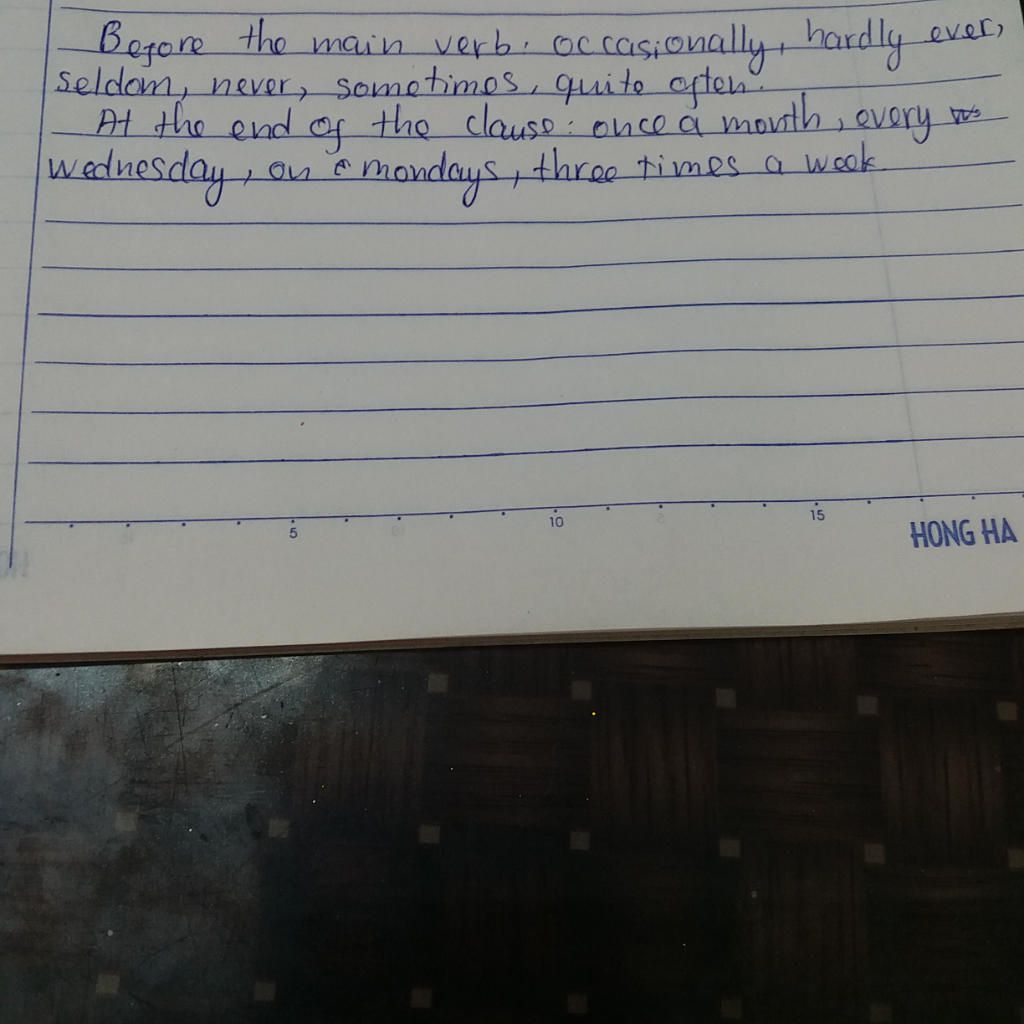 Before the main verb. occasionally, hardly ever,
seldom, never, sometimes, quite often.
At the end of the clause: once a month, every
wednesday, on mondays, three times a week
5 10 15
HONG HA